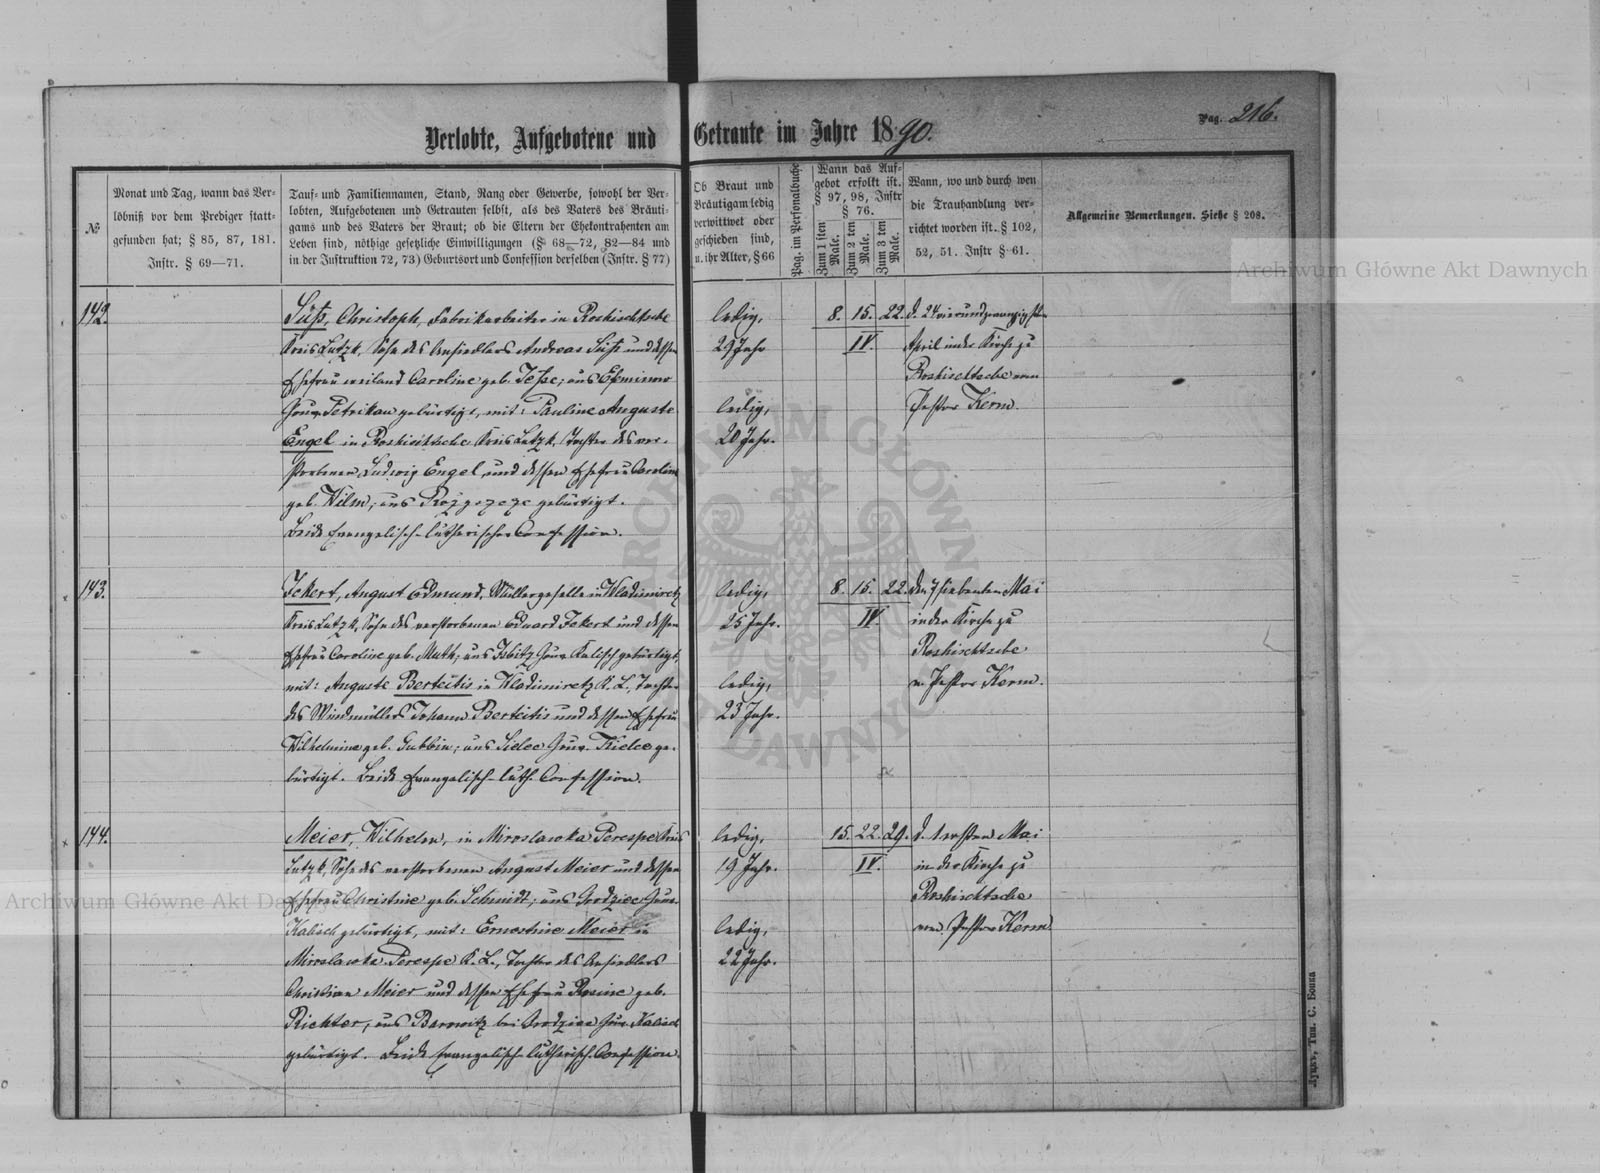 Pag. 216.
Verlobte, Aufgebotene und Getraute im Jahre 1890.
№
Monat und Tag, wann das Ver-
löbniß vor dem Prediger statt-
gefunden hat; § 85, 87, 181.
Instr. § 69—71.
Tauf- und Familiennamen, Stand, Rang oder Gewerbe, sowohl der Ver-
lobten, Aufgebotenen und Getrauten selbst, als des Vaters des Bräuti-
gams und des Vaters der Braut; ob die Eltern der Ehekontrahenten am
Leben sind, nöthige gesetzliche Einwilligungen (§ 68—72, 82—84 und
in der Instruktion 72, 73) Geburtsort und Confession derselben (Instr. § 77)
Ob Braut und
Bräutigam ledig
verwittwet oder
geschieden sind,
u. ihr Alter, § 66
Pag. im Personalbuche
Wann das Auf-
gebot erfolgt ist.
§ 97, 98, Instr
§ 76.
Zum 1 sten
Male.
Zum 2 ten
Male.
Zum 3 ten
Male.
Wann, wo und durch wen
die Trauhandlung ver-
richtet worden ist. § 102,
52, 51. Instr § 61.
Allgemeine Bemerkungen. Siehe § 208.
142.
Süß, Christoph, Fabrikarbeiter in Roshischtsche
Kreis Lutzk, Sohn des Ansiedlers Andreas Süß und dessen
Ehefrau weiland Caroline geb. Jesse; aus
Gouv. Petrikau gebürtigt, mit: Pauline Auguste
Engel in Roshischtsche Kreis Lutzk, Tochter des ver-
storbenen Ludwig Engel und dessen Ehefrau Caroline
geb. Wilm; aus gebürtigt.
Beide Evangelisch-lutherischer Confession.
ledig,
29 Jahr
ledig,
20 Jahr.
8. 15. 22.
IV.
d. 24 vierundzwanzigsten
April in der Kirche zu
Roshischtsche vom
Pastor Kerm.
143.
Jekert, August Edmund, Müllergeselle in Wladimiretz
Kreis Lutzk, Sohn des verstorbenen Eduard Jekert und dessen
Ehefrau Caroline geb. Muth; aus Isbitz Gouv. Kalisch gebürtigt,
mit: Auguste Berteitis in Wladimiretz K. L., Tochter
des Windmüllers Johann Berteitis und dessen Ehefrau
Wilhelmine geb. Gubbin; aus Sielec Gouv. Kielce ge-
bürtigt. Beide Evangelisch-luth. Confession.
ledig,
25 Jahr.
ledig,
23 Jahr.
8. 15. 22.
IV.
den 7 siebenten Mai
in der Kirche zu
Roshischtsche
v. Pastor Kerm.
144.
Meier, Wilhelm, in Miroslawka Perespe Kreis
Lutzk, Sohn des verstorbenen August Meier und dessen
Ehefrau Christine geb. Schmidt; aus Grodziec Gouv.
Kalisch gebürtigt, mit: Ernestine Meier in
Miroslawka Perespe K. L., Tochter des Ansiedlers
Christian Meier und dessen Ehefrau Rosine geb.
Richter, aus Borowitz bei Grodziec Gouv. Kalisch
gebürtigt. Beide Evangelisch-lutherisch. Confession.
ledig,
19 Jahr.
ledig,
22 Jahr.
15. 22. 29.
IV.
d. 1 ersten Mai
in der Kirche zu
Roshischtsche
vom Pastor Kerm
Луцкъ, Тип. С. Бонка
Archiwum Główne Akt Dawnych
Archiwum Główne Akt Dawnych
ARCHIWUM GŁÓWNE AKT DAWNYCH